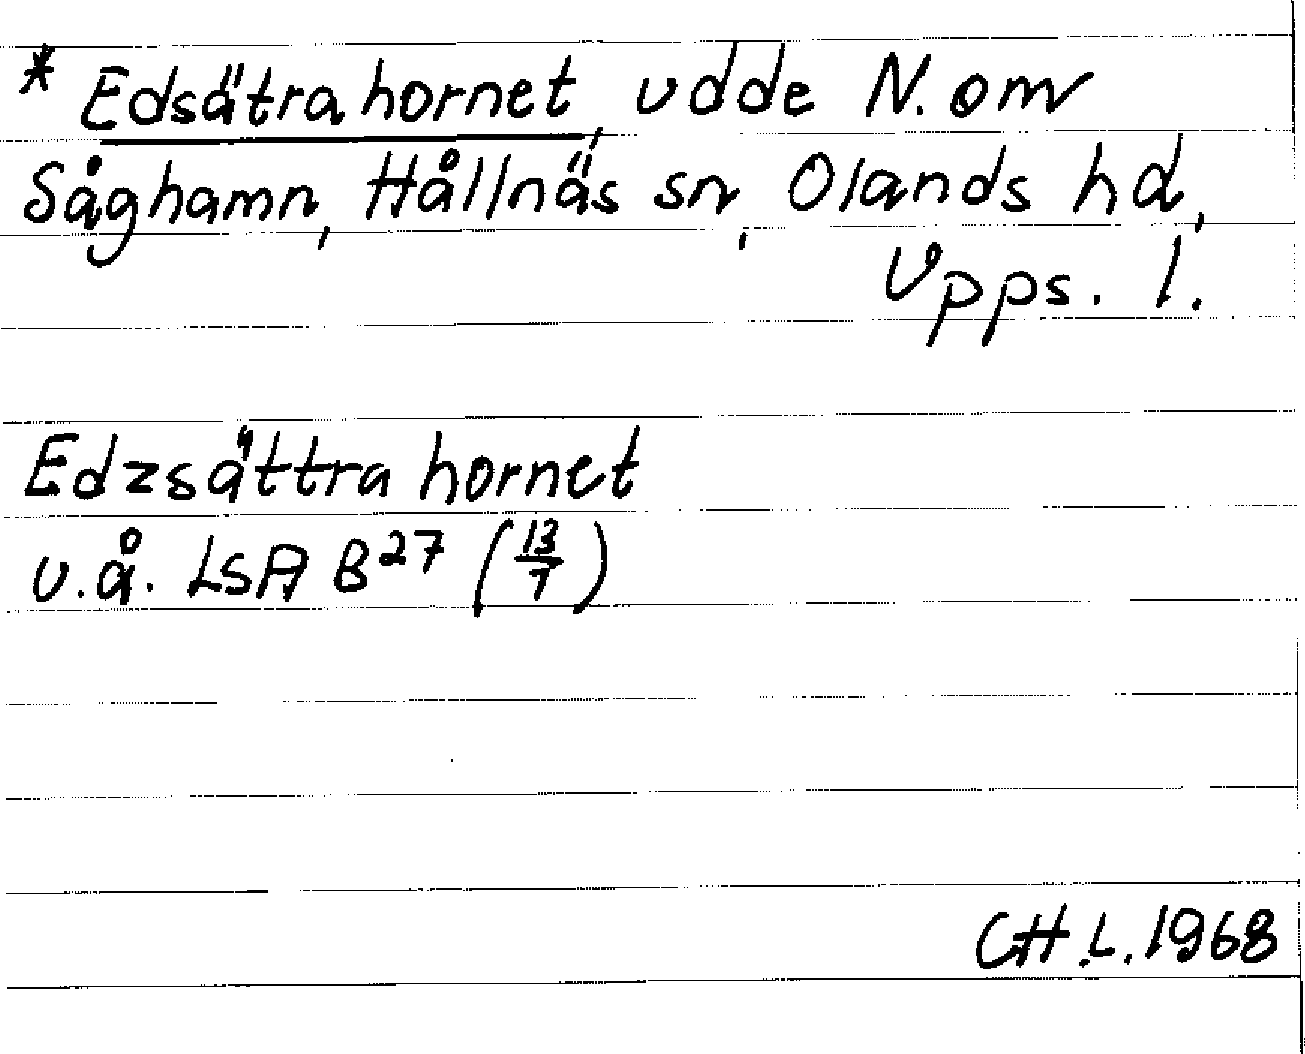 * Edsätrahornet, udde N. om
Såghamn, Hållnäs sn, Olands hd,
Upps. l.
Edzsättra hornet
u.å. LSA B²⁷ (13/7)
CH.L. 1968